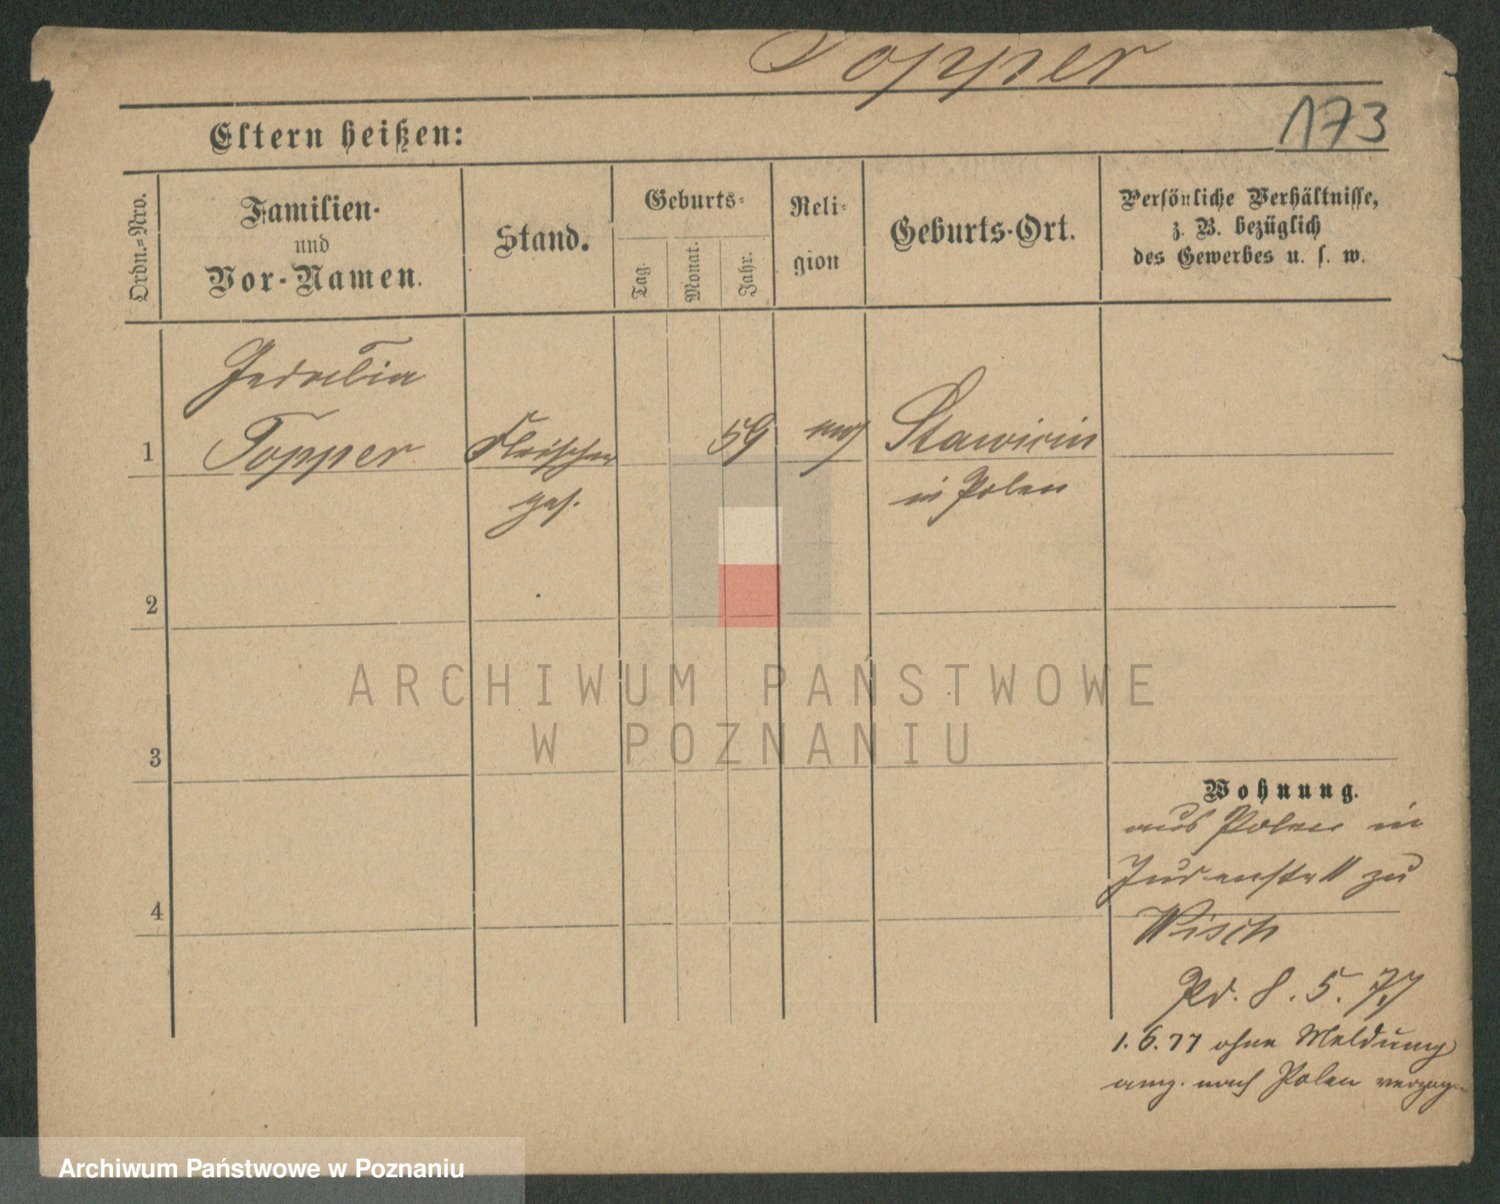 Topper
173
Eltern heißen:
Ordn.-Nro.
Familien-
und
Vor-Namen.
Stand.
Geburts-
Tag.
Monat.
Jahr.
Reli-
gion
Geburts-Ort.
Persönliche Verhältnisse,
z. B. bezüglich
des Gewerbes u. s. w.
1
Topper
Fleischer
ges.
59
Stawiszin
in Polen
2
3
4
ARCHIWUM PAŃSTWOWE
W POZNANIU
Wohnung.
aus Polen in
zu
Wisch
Pd. 8. 5. 77
1. 6. 77 ohne Meldung
ang. nach Polen verzogen
Archiwum Państwowe w Poznaniu